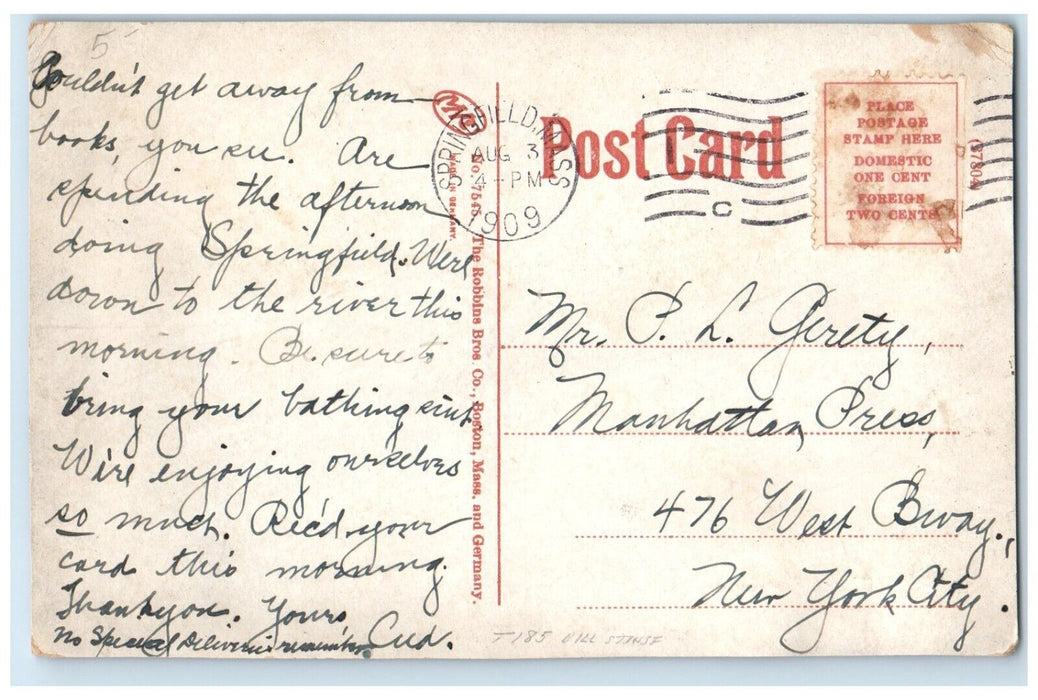 5
Couldn't get away from
books, you see. Are
spending the afternoon
doing Springfield. Were
down to the river this
morning. Be sure to
bring your bathing suit.
We're enjoying ourselves
so much. Rec'd your
card this morning.
Thank you. Yours,
No Special Deliveries remember.
MADE IN GERMANY.
The Robbins Bros. Co., Boston, Mass. and Germany.
SPRINGFIELD, MASS
AUG 3
4-PM
1909
C
Post Card
PLACE
POSTAGE
STAMP HERE
DOMESTIC
ONE CENT
FOREIGN
TWO CENTS
Mr. P. L. Gerety,
Manhattan Press,
476 West Bway.,
New York City.
T-185